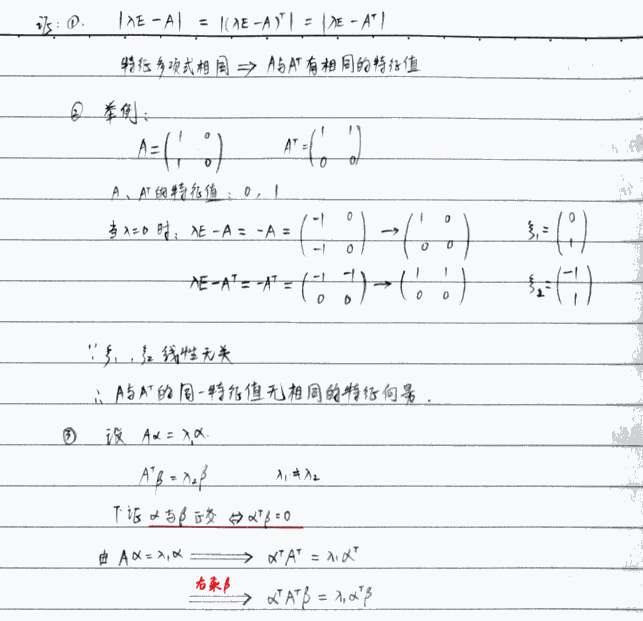 证：①. |λE-A| = |(λE-A)ᵀ| = |λE-Aᵀ|
特征多项式相同 ⇒ A与Aᵀ有相同的特征值
② 举例：
A=(1 0; 1 0) Aᵀ=(1 1; 0 0)
A、Aᵀ的特征值：0，1
当λ=0时，λE-A=-A=(-1 0; -1 0)→(1 0; 0 0) ξ₁=(0; 1)
λE-Aᵀ=-Aᵀ=(-1 -1; 0 0)→(1 1; 0 0) ξ₂=(-1; 1)
∵ξ₁，ξ₂线性无关
∴A与Aᵀ的同一特征值无相同的特征向量.
③ 设 Aα=λ₁α.
Aᵀβ=λ₂β λ₁≠λ₂
下证 α与β正交 ⇔ αᵀβ=0
由 Aα=λ₁α ⟹ αᵀAᵀ=λ₁αᵀ
右乘β
⟹ αᵀAᵀβ=λ₁αᵀβ